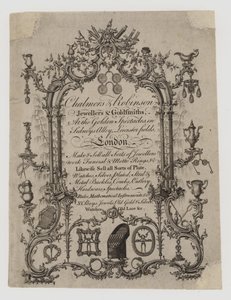 Chalmers & Robinson
Jewellers & Goldsmiths,
At the Golden Spectacles in
Sidneys Alley, Leicester fields,
London.
Make & Sell all Sorts of Jewellers
work Funeral & Motto Rings, &c
Likewise Sell all Sorts of Plate,
Watches, Silver, Plated, Steel &
Metal Buckles, Combs, Cutlery
Hardwares Spectacles
Mathematical Instruments &c
NB. Buys Jewels Old Gold & Silver
Watches Old Lace &c